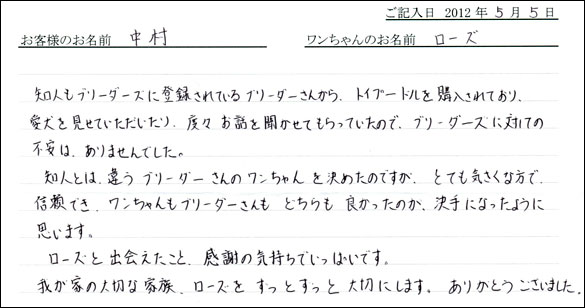 ご記入日 2012 年 5 月 5 日
お客様のお名前 中村 ワンちゃんのお名前 ローズ
知人もブリーダーズに登録されているブリーダーさんから、トイプードルを購入されており、
愛犬を見せていただいたり、度々お話を聞かせてもらっていたので、ブリーダーズに対しての
不安は、ありませんでした。
知人とは、違うブリーダーさんのワンちゃんを決めたのですが、とても気さくな方で、
信頼でき、ワンちゃんもブリーダーさんもどちらも良かったのが、決手になったように
思います。
ローズと出会えたこと、感謝の気持ちでいっぱいです。
我が家の大切な家族、ローズをずっとずっと大切にします。ありがとうございました